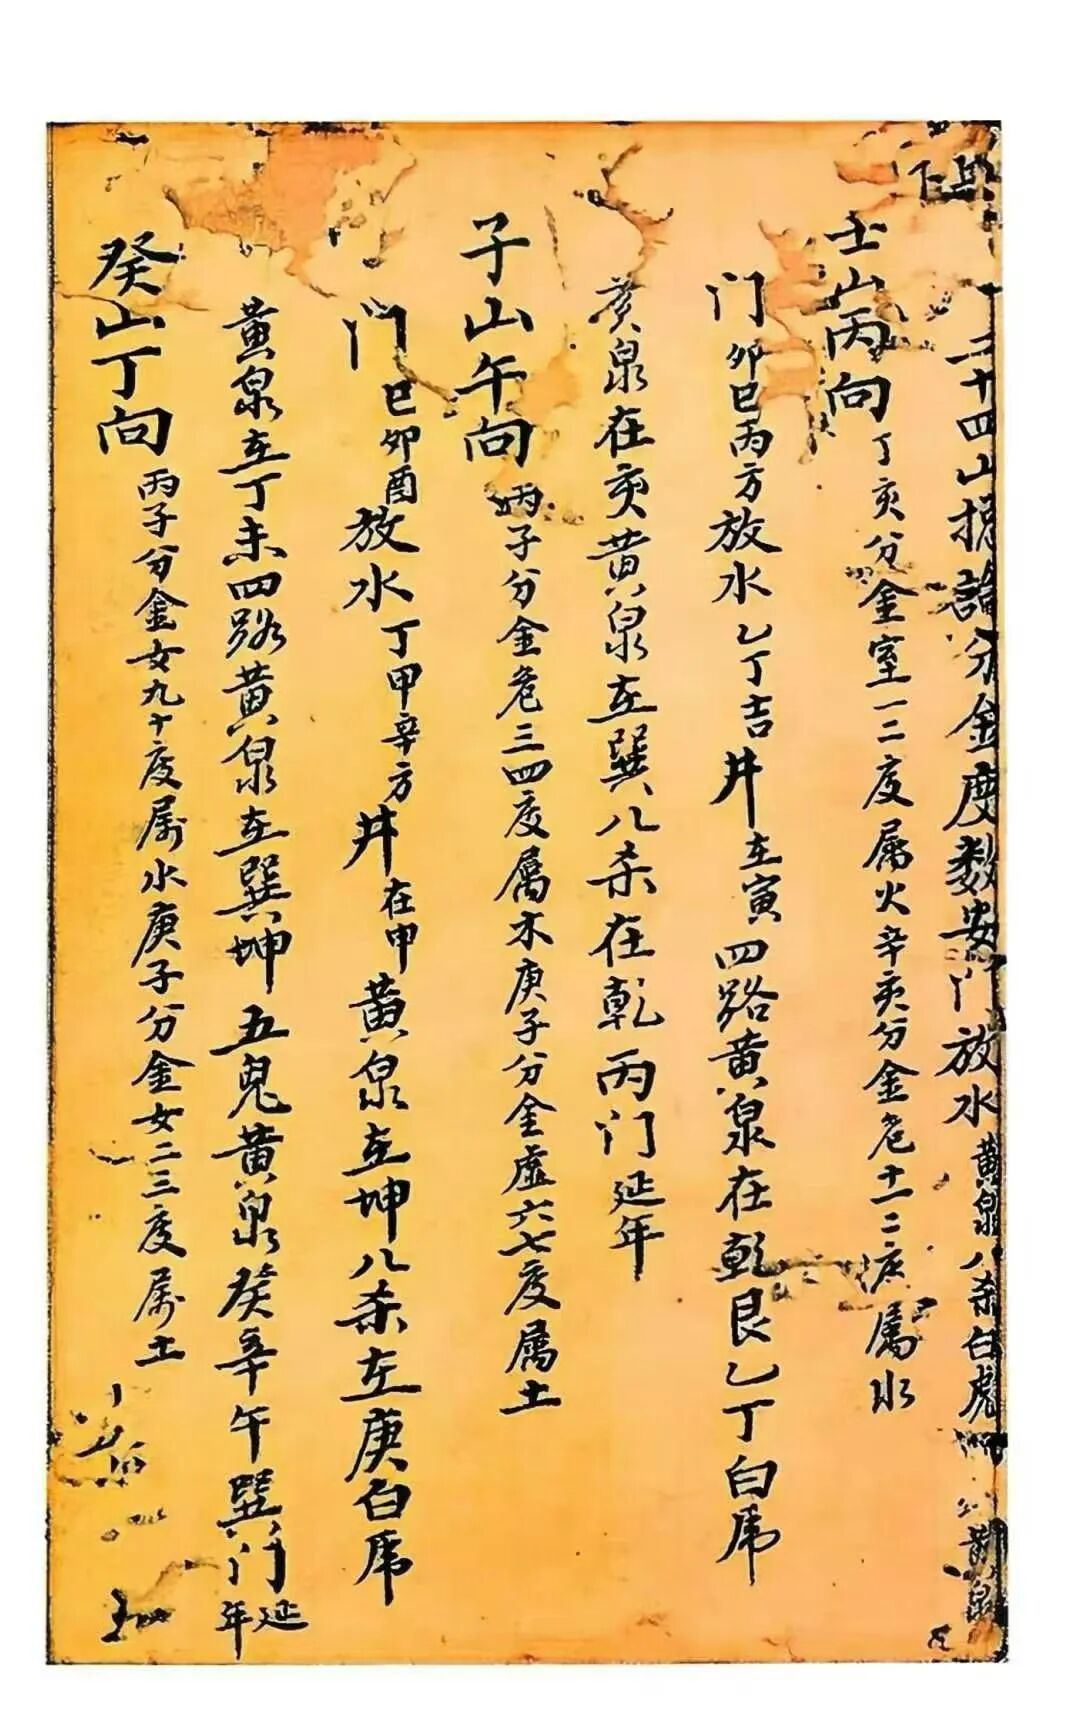 二十四山 論分金度数安门放水 黄泉八杀白虎
壬山丙向 丁亥分金室一二度属火辛亥分金危十一二度属水
门 卯巳丙方 放水 乙丁吉 井 在寅 四路黄泉在乾艮乙丁白虎
黄泉在亥黄泉在巽八杀在乾丙门 延年
子山午向 丙子分金危三四度属木庚子分金虚六七度属土
门 巳卯酉 放水 丁甲辛方 井 在申 黄泉在坤八杀在庚白虎
黄泉在丁未四路黄泉在巽坤五鬼黄泉癸辛午巽门 延年
癸山丁向 丙子分金女九十度属水庚子分金女二三度属土